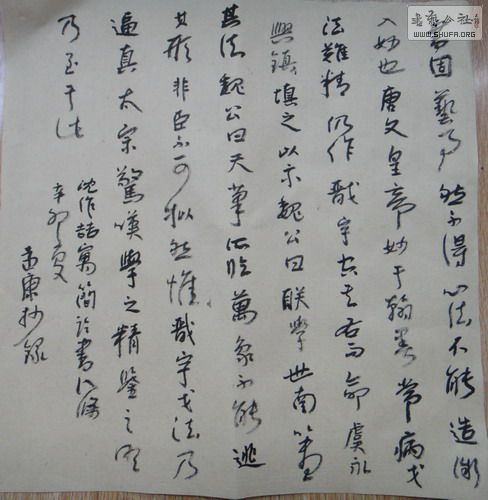 書固藝事然不得心法不能造微
入妙也唐文皇帝妙于翰墨常病戈
法難精仍作戩字空其右而命虞永
興鎮填之以示魏公曰朕學世南盡
其法魏公曰天筆所臨萬象不能逃
其形非臣下可拟然惟戩字戈法乃
逼真太宗驚嘆學之精鑒之明
乃至于此
沈作喆寓簡論書八條
辛卯夏
康抄錄
書藝公社
WWW.SHUFA.ORG